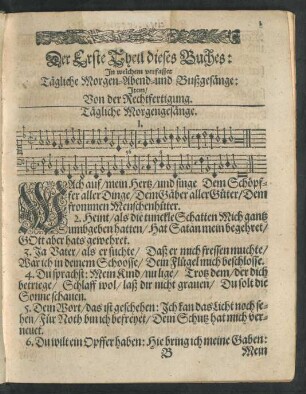 Der Erste Theil dieses Buches:
In welchem verfasset
Tägliche Morgen-Abend und Bußgesänge:
Item/
Von der Rechtfertigung.
Tägliche Morgengesänge.
1.
WAch auf/ mein Hertz/ und singe Dem Schöpf-
fer aller Dinge/ Dem Gäber aller Güter/ Dem
frommen Menschenhüter.
2. Heint/ als die tunckle Schatten Mich gantz
umbgeben hatten/ Hat Satan mein begehret/
GOtt aber hats gewehret.
3. Ja Vater/ als er suchte/ Daß er mich fressen muchte/
War ich in deinem Schoosse/ Dein Flügel mich beschlosse.
4. Du sprachst: Mein Kind/ nu lige/ Trotz dem/ der dich
betriege/ Schlaff wol/ laß dir nicht grauen/ Du solt die
Sonne schauen.
5. Dein Wort/ das ist geschehen: Ich kan das Licht noch se-
hen/ Für Noth bin ich befreyet/ Dein Schutz hat mich ver-
neuet.
6. Du wilt ein Opffer haben: Hie bring ich meine Gaben:
B Mein